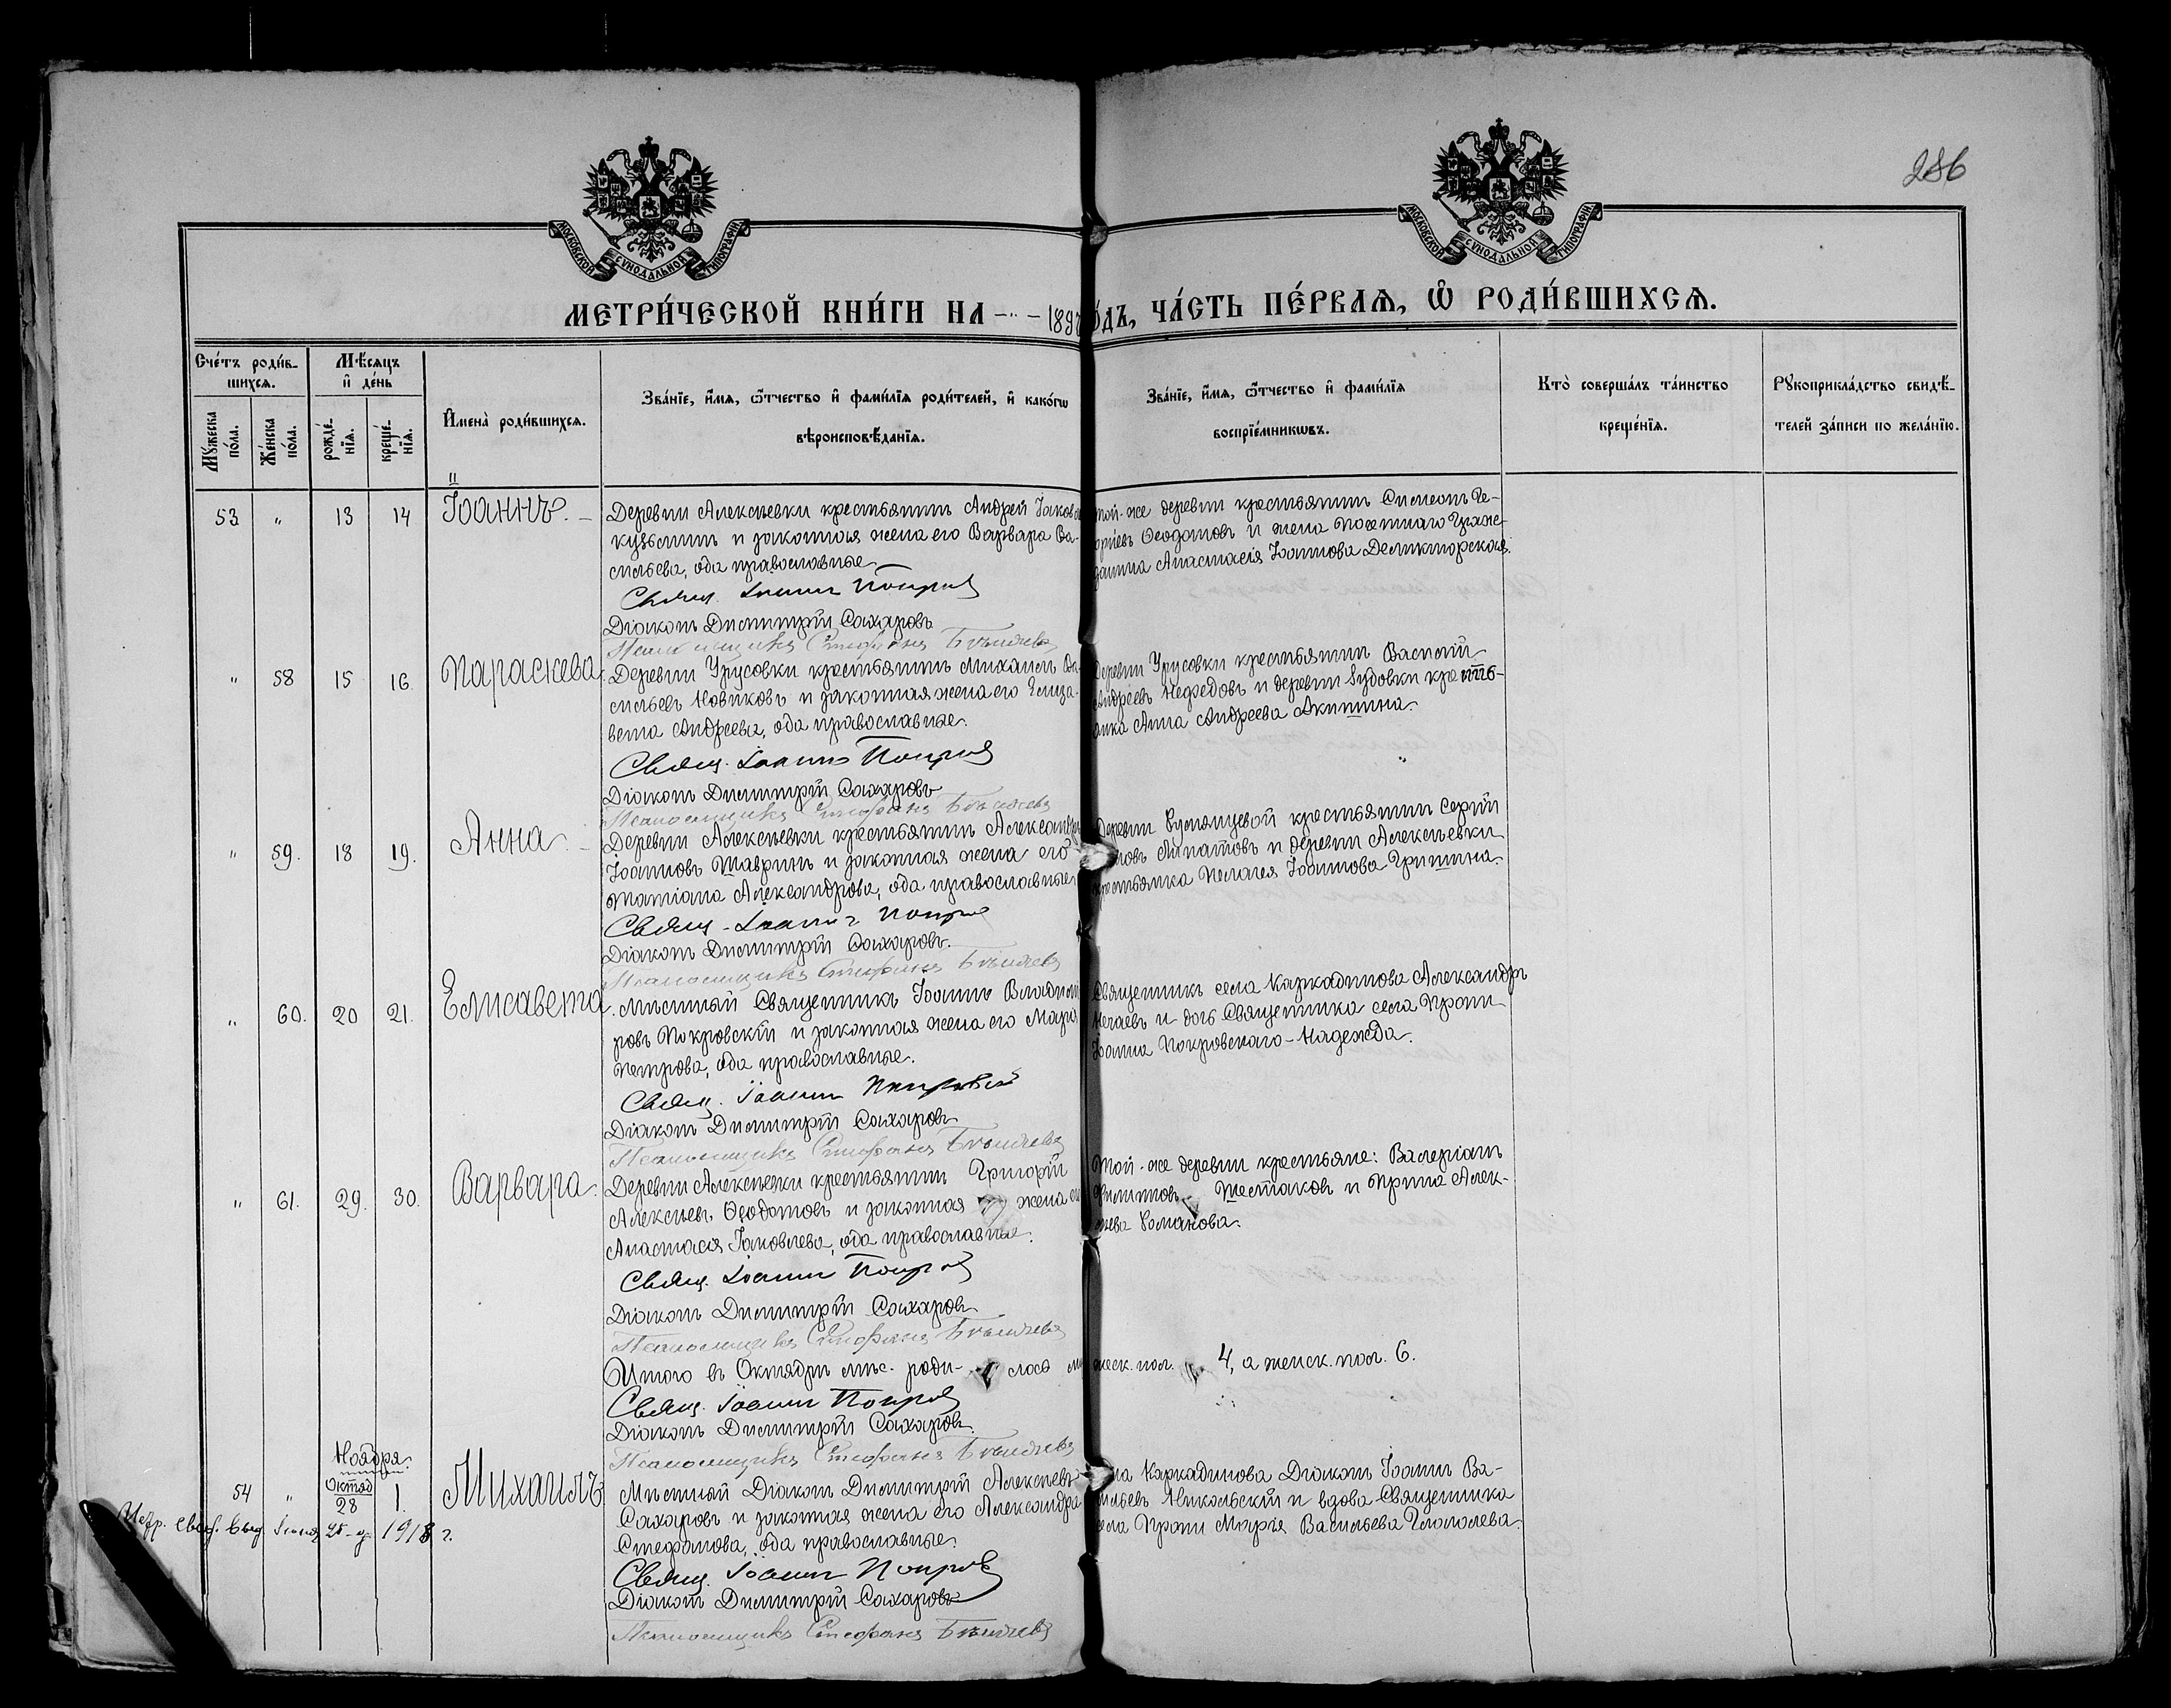 286
МОСКОВСКОЙ СУНОДАЛЬНОЙ ТИПОГРАФІИ.
МОСКОВСКОЙ СУНОДАЛЬНОЙ ТИПОГРАФІИ.
МЕТРИ́ЧЕСКОЙ КНИ́ГИ НА 189 О́ДЪ, ЧА́СТЬ ПЕ́РВАѦ, Ѡ РОДИ́ВШИХСѦ.
Сче́тъ роди́в-
шихсѧ.
Мѣ́сѧцъ
и де́нь
Мꙋ́жеска по́ла.
Же́нска по́ла.
рожде́нїѧ.
креще́нїѧ.
И҆мена̀ роди́вшихсѧ.
Зва́нїе, и҆́мѧ, ѻ҆́тчество и҆ фами́лїѧ роди́телей, и҆ како́гѡ
вѣроисповѣ́данїѧ.
Зва́нїе, и҆́мѧ, ѻ҆́тчество и҆ фами́лїѧ
воспрїе́мникѡвъ.
Кто̀ соверша́лъ та́инство
креще́нїѧ.
Рꙋкоприкла́дство свидѣ́-
телей за́писи по жела́нїю.
53 " 13 14 Іоаннъ.
Деревни Алексѣевки крестьянинъ Андрей Іаковл
Кузьминъ и законная жена его Варвара Ва-
сильева, оба православные
Свящ. Іоаннъ Покров
Діаконъ Димитрій Сахаровъ
Псаломщикъ Стефанъ Бѣляевъ
той-же деревни крестьянинъ Симеонъ Ге-
оргіевъ Ѳеодотовъ и жена Почетнаго Граж-
данина Анастасія Іоаннова Деликторская.
" 58 15 16 Параскева.
Деревни Урусовки крестьянинъ Михаилъ Ва-
сильевъ Новиковъ и законная жена его Елиза-
вета Андреева, оба православные.
Свящ. Іоаннъ Покров
Діаконъ Димитрій Сахаровъ
Псаломщикъ Стефанъ Бѣляевъ
Деревни Урусовки крестьянинъ Василій
Андреевъ Нефедовъ и деревни крестья-
анка Анна Андреева Акишина.
" 59. 18 19. Анна.
Деревни Алексѣевки крестьянинъ Александръ
Іоанновъ Шавринъ и законная жена его
Татіана Александрова, оба православные.
Свящ. Іоаннъ Покров
Діаконъ Димитрій Сахаровъ.
Псаломщикъ Стефанъ Бѣляевъ
Деревни крестьянинъ Сергій
Липатовъ и деревни Алексѣевки
крестьянка Пелагея Іоаннова Гришина.
" 60. 20 21. Елисавета.
Мѣстный Священникъ Іоаннъ Владими
ровъ Покровскій и законная жена его Марія
Петрова, оба православные.
Свящ. Іоаннъ Покровскій
Діаконъ Димитрій Сахаровъ
Псаломщикъ Стефанъ Бѣляевъ
Священникъ села Каркадинова Александръ
Нечаевъ и дочь Священника села Прони
Іоанна Покровскаго - Надежда.
" 61. 29. 30. Варвара.
Деревни Алексѣевки крестьянинъ Григорій
Алексѣевъ Ѳеодотовъ и законная жена его
Анастасія Іаковлева, оба православные.
Свящ. Іоаннъ Покров
Діаконъ Димитрій Сахаровъ
Псаломщикъ Стефанъ Бѣляевъ
Той-же деревни крестьяне: Валеріанъ
Филиповъ Шестаковъ и Ирина Алек-
сѣева Романова.
Итого въ Октябрѣ мѣс. роди- лось мужеск. пол. 4, а женск. пол. 6.
Свящ. Іоаннъ Покров
Діаконъ Димитрій Сахаровъ
Псаломщикъ Стефанъ Бѣляевъ
Ноября.
54 " Октяб 28 1. Михаилъ
Мѣстный Діаконъ Димитрій Алексѣевъ
Сахаровъ и законная жена его Александра
Стефанова, оба православные.
Свящ. Іоаннъ Покров
Діаконъ Димитрій Сахаровъ
Псаломщикъ Стефанъ Бѣляевъ
ла Каркадинова Діаконъ Іоаннъ Ва-
сильевъ Никольскій и вдова Священника
села Прони Марія Васильева Глаголева.
Метр. свид. выд. 25-го 1918 г.